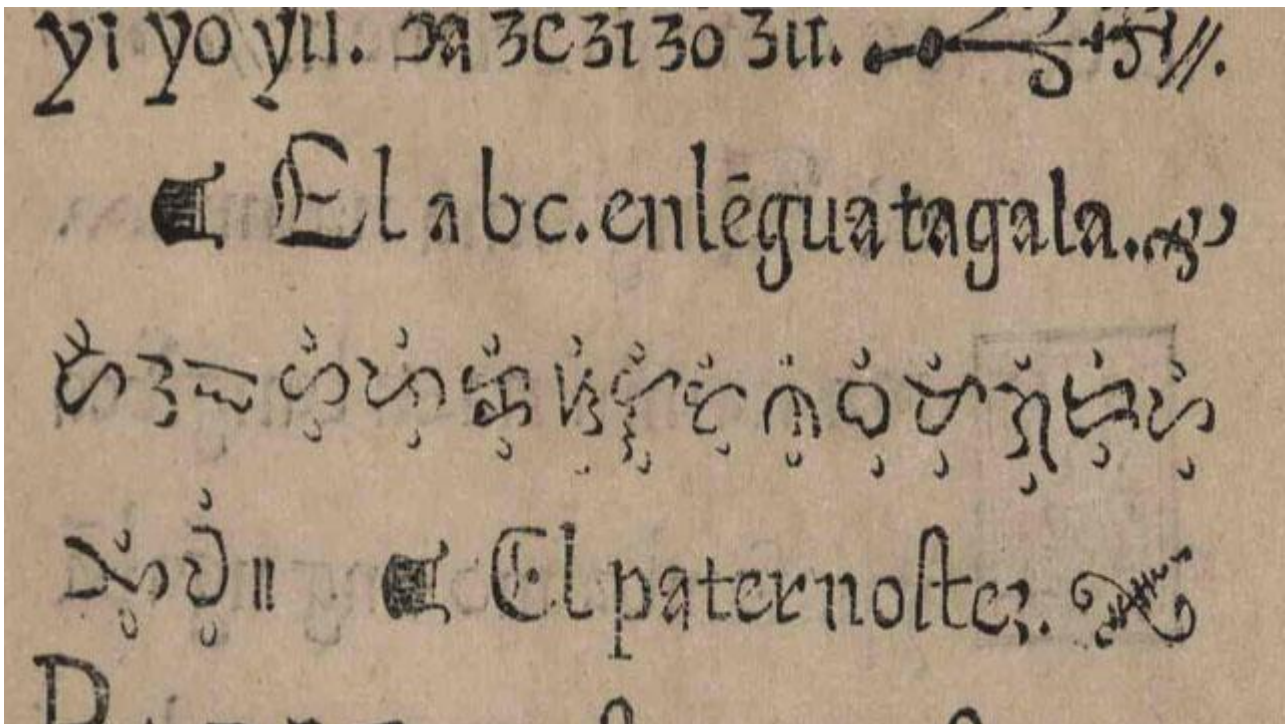 yi yo yu. ʒa ʒe ʒi ʒo ʒu. //.
¶ El abc. en lēgua tagala.
ᜀ ᜂ ᜁ ᜑᜒᜓ ᜉᜒᜓ ᜃᜒᜓ ᜐᜒᜓ ᜎᜒᜓ ᜆᜒᜓ ᜈᜒᜓ ᜊᜒᜓ ᜋᜒᜓ ᜄᜒᜓ ᜇᜒᜓ ᜌᜒᜓ
ᜅᜒᜓ ᜏᜒᜓ ॥ ¶ El pater noſter.